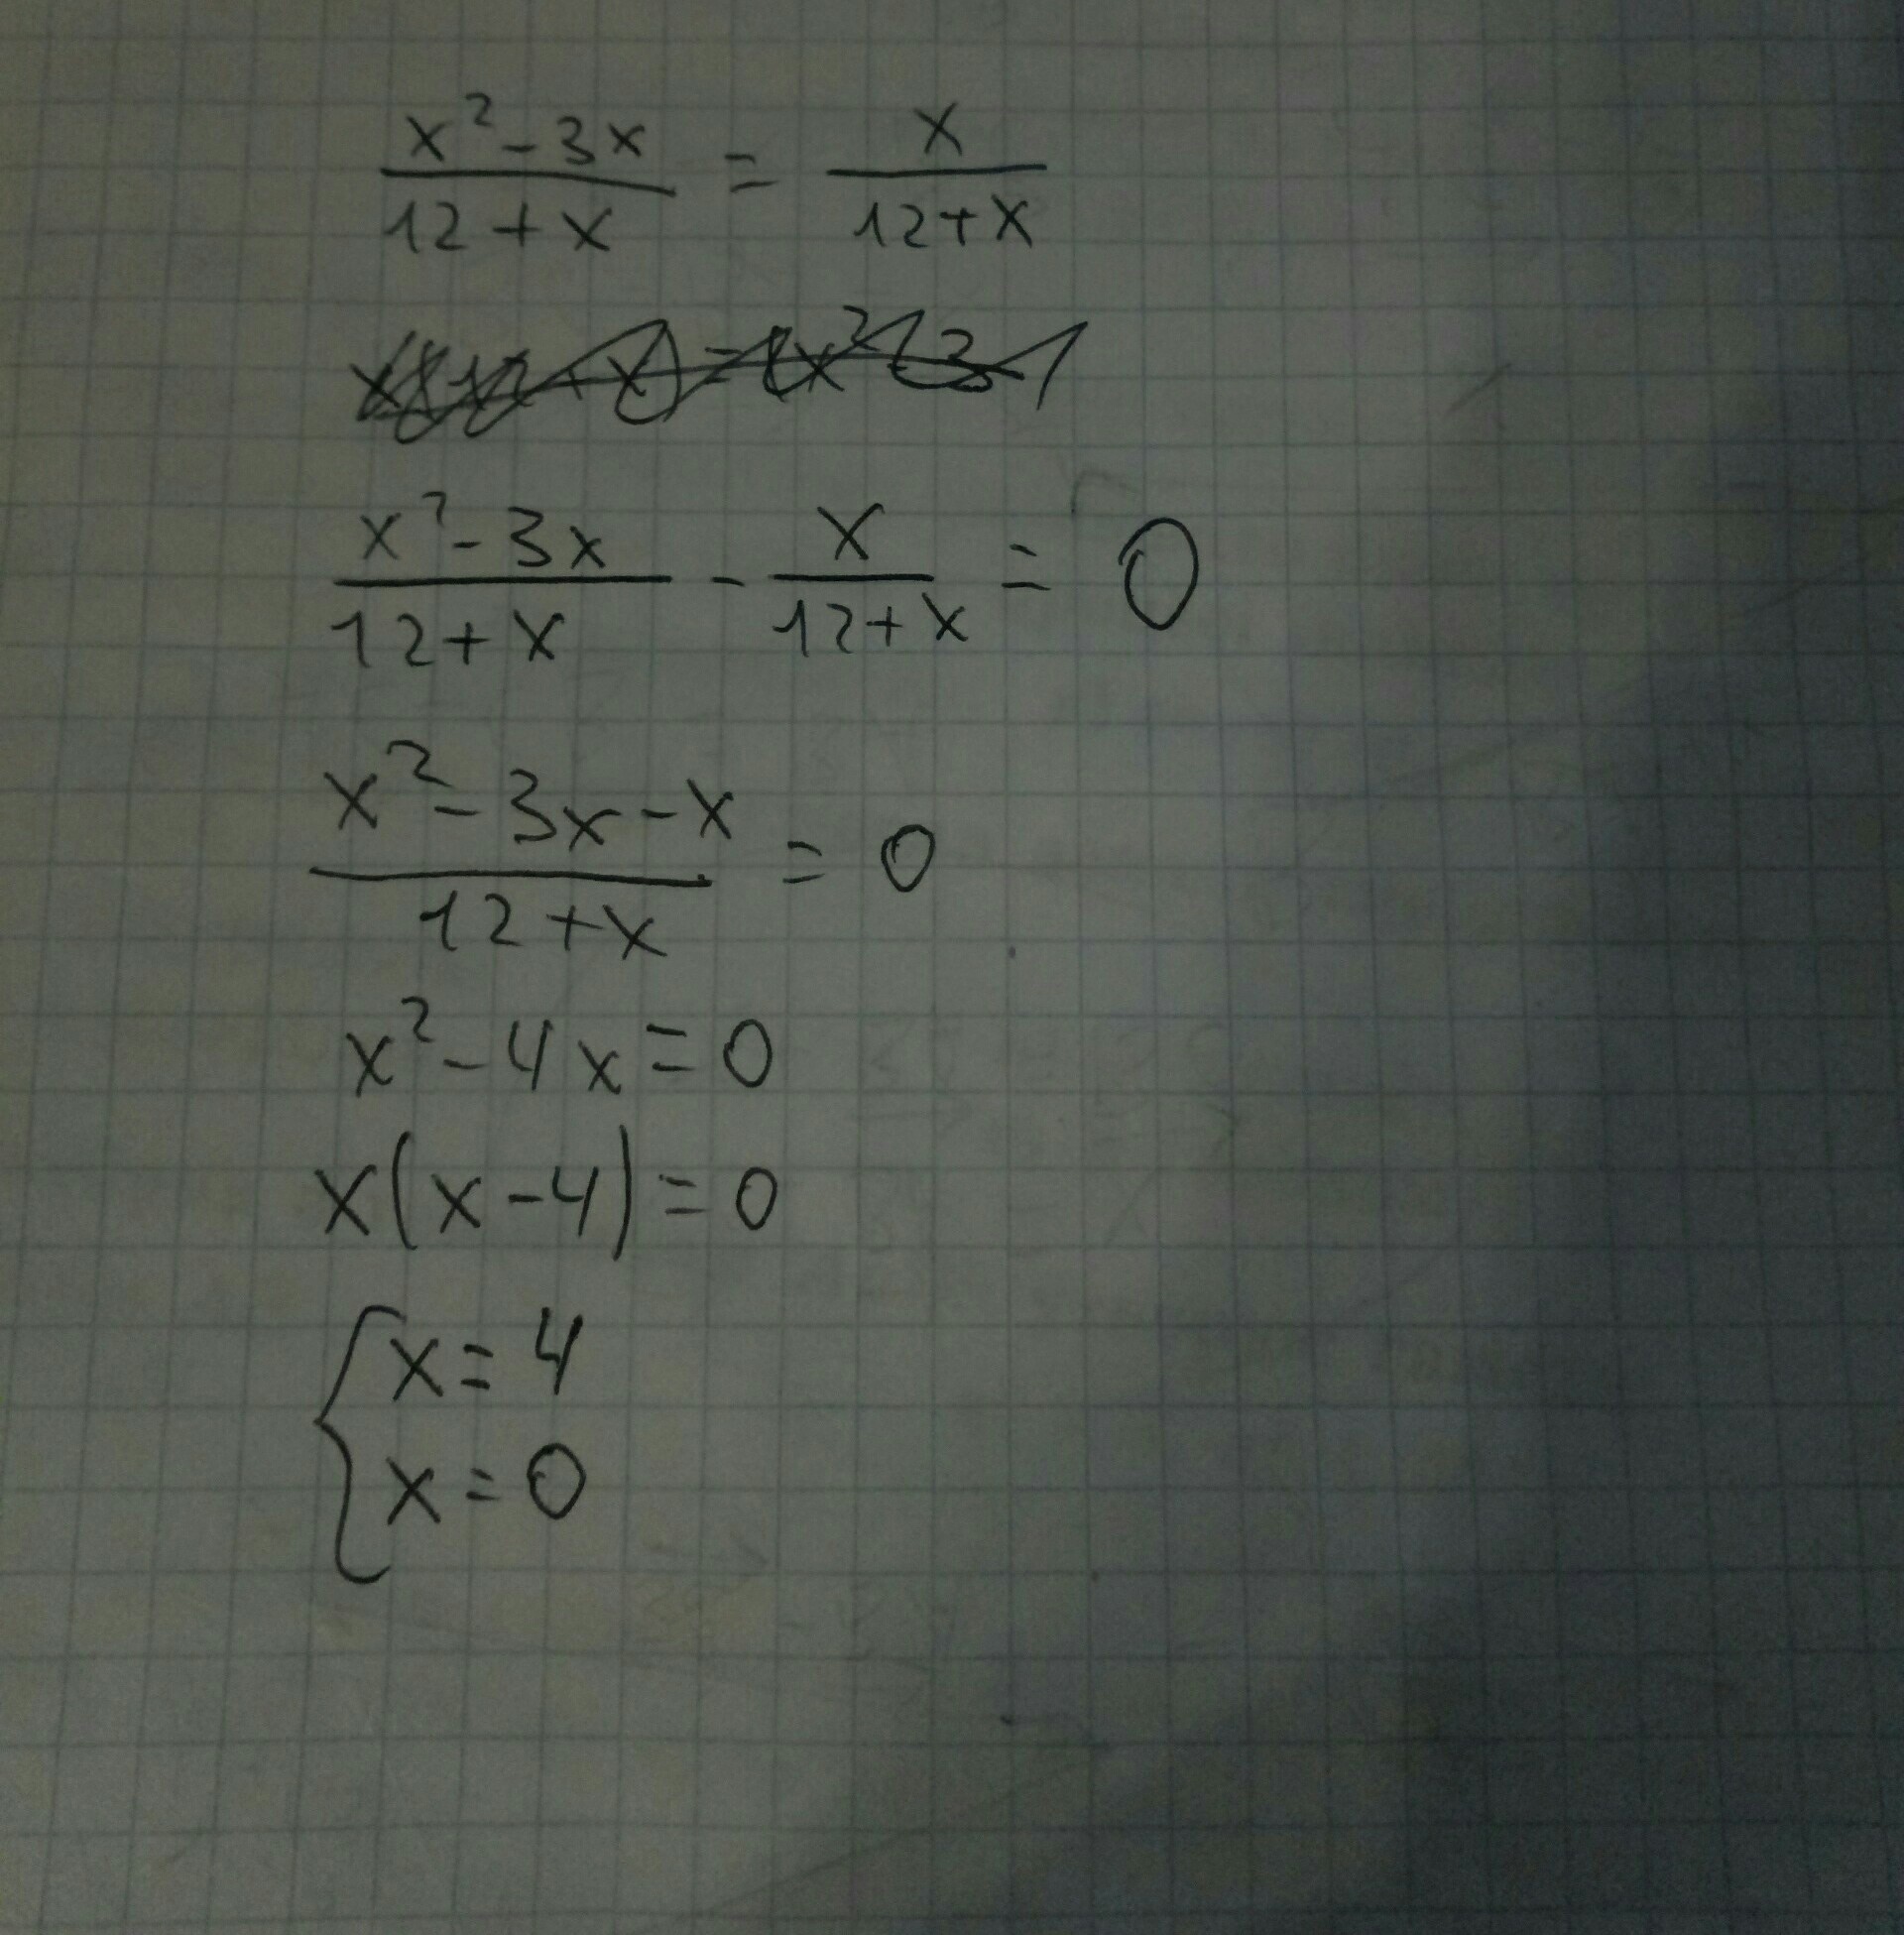 x² - 3x / 12 + x = x / 12 + x
x² - 3x / 12 + x - x / 12 + x = 0
x² - 3x - x / 12 + x = 0
x² - 4x = 0
x(x - 4) = 0
{ x = 4
x = 0